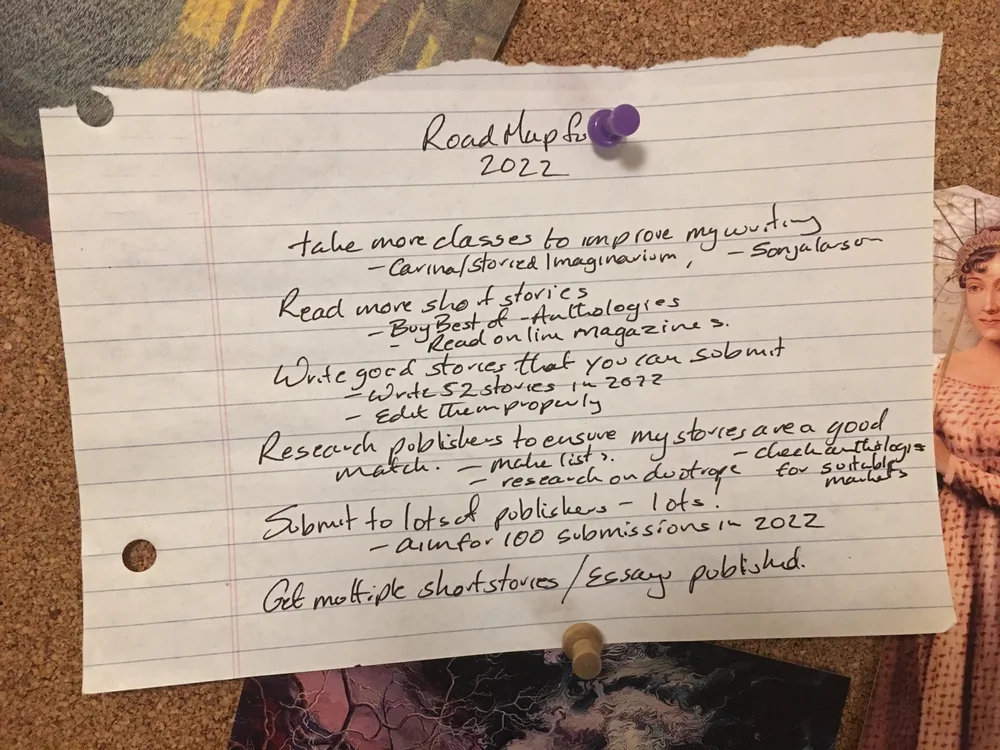 Road Map fo
2022
take more classes to improve my writing
- Carina/Storied Imaginarium, - Sonja larson
Read more short stories
- Buy Best of - Anthologies
- Read online magazines.
Write good stories that you can submit
- Write 52 stories in 2022
- Edit them properly
Research publishers to ensure my stories are a good
match. - make lists. - check anthologies
- research on duotrope for suitable
markets
Submit to lots of publishers - lots!
- aim for 100 submissions in 2022
Get moltiple short stories / Essays published.